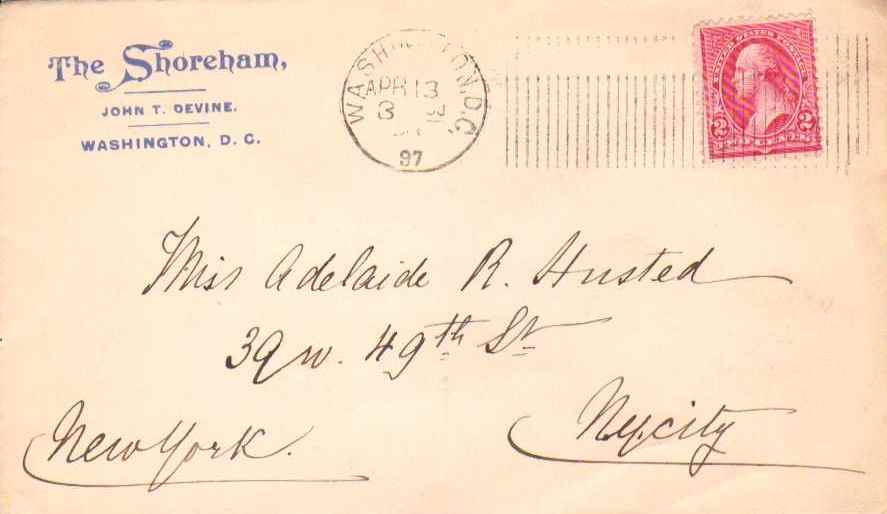 The Shoreham,
JOHN T. DEVINE.
WASHINGTON, D. C.
WASHINGTON, D.C.
APR 13
3
97
UNITED STATES POSTAGE
2 2
Miss Adelaide R. Husted
39 W. 49th St
New York.
N.Y. City